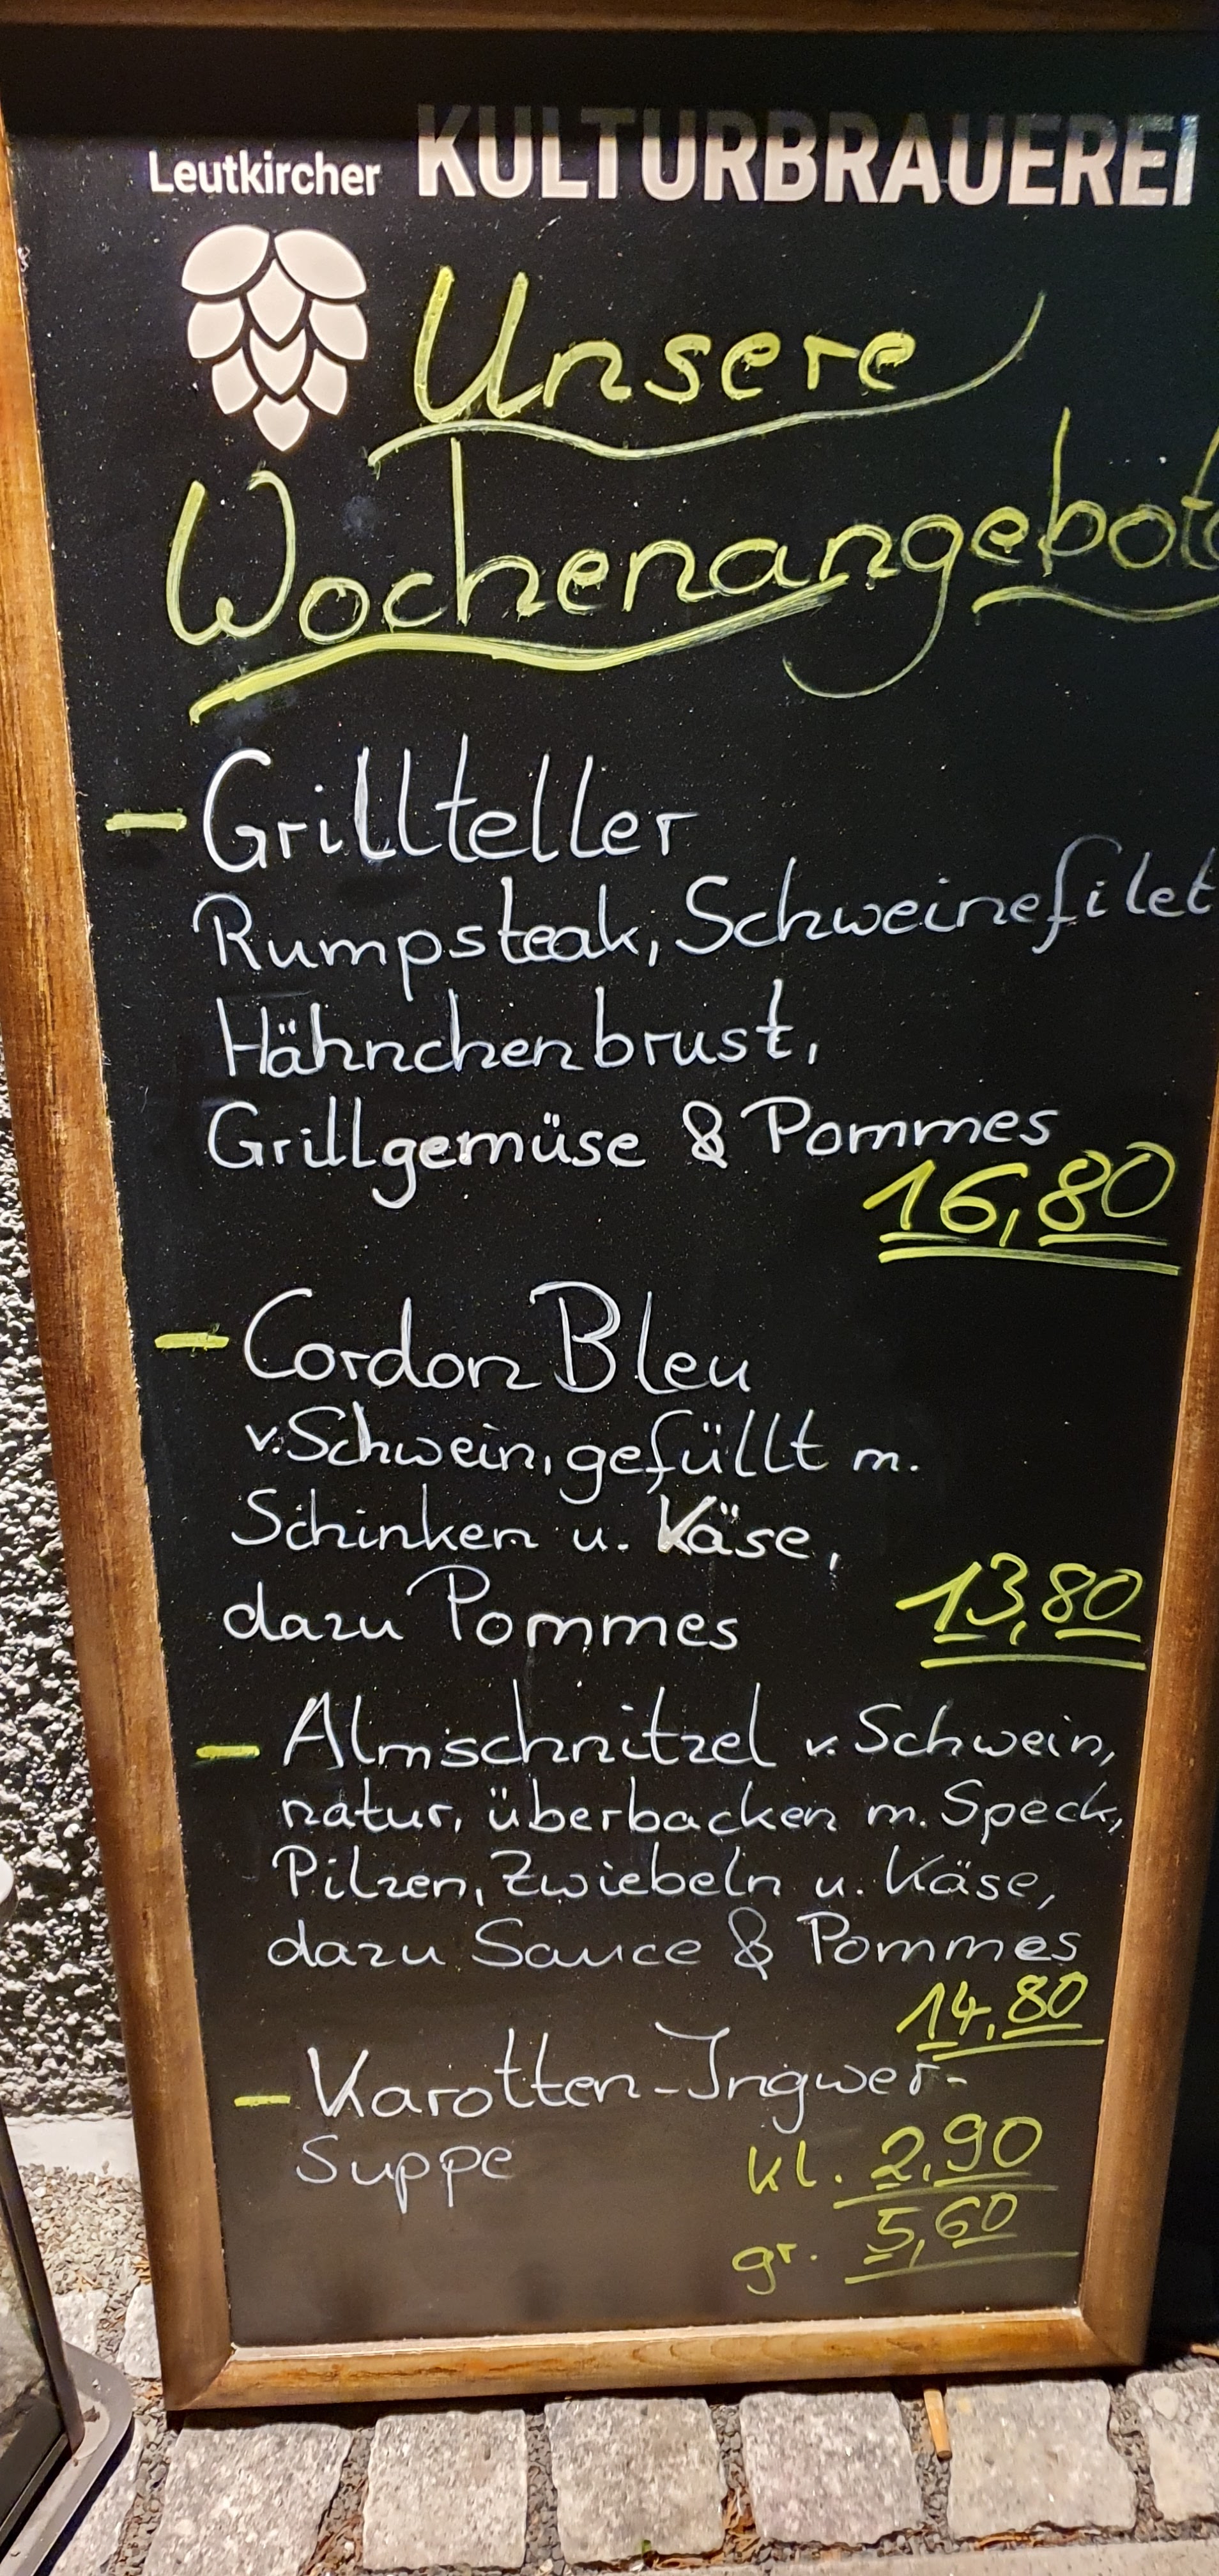 Leutkircher KULTURBRAUEREI
Unsere
Wochenangebote
- Grillteller
Rumpsteak, Schweinefilet
Hähnchenbrust,
Grillgemüse & Pommes
16,80
- Cordon Bleu
v. Schwein, gefüllt m.
Schinken u. Käse,
dazu Pommes 13,80
- Almschnitzel v. Schwein,
natur, überbacken m. Speck,
Pilzen, Zwiebeln u. Käse,
dazu Sauce & Pommes
14,80
- Karotten-Ingwer-
Suppe kl. 2,90
gr. 5,60